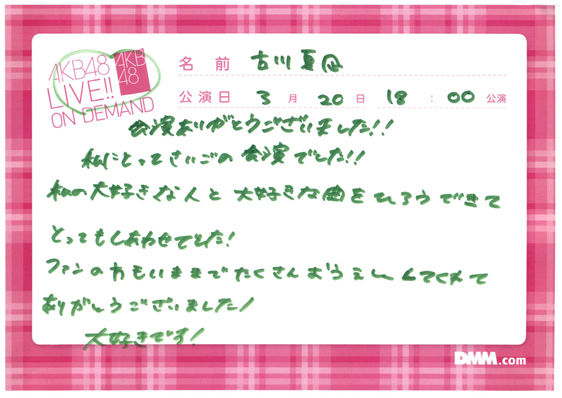 AKB48 LIVE!! ON DEMAND
AKB48
名前 古川夏凪
公演日 3月20日 18:00 公演
公演ありがとうございました!!
私にとってさいごの公演でした!!
私の大好きな人と大好きな曲をひろうできて
とってもしあわせでした!
ファンの方もいままでたくさんおうえんしてくれて
ありがとうございました!
大好きです!
DMM.com